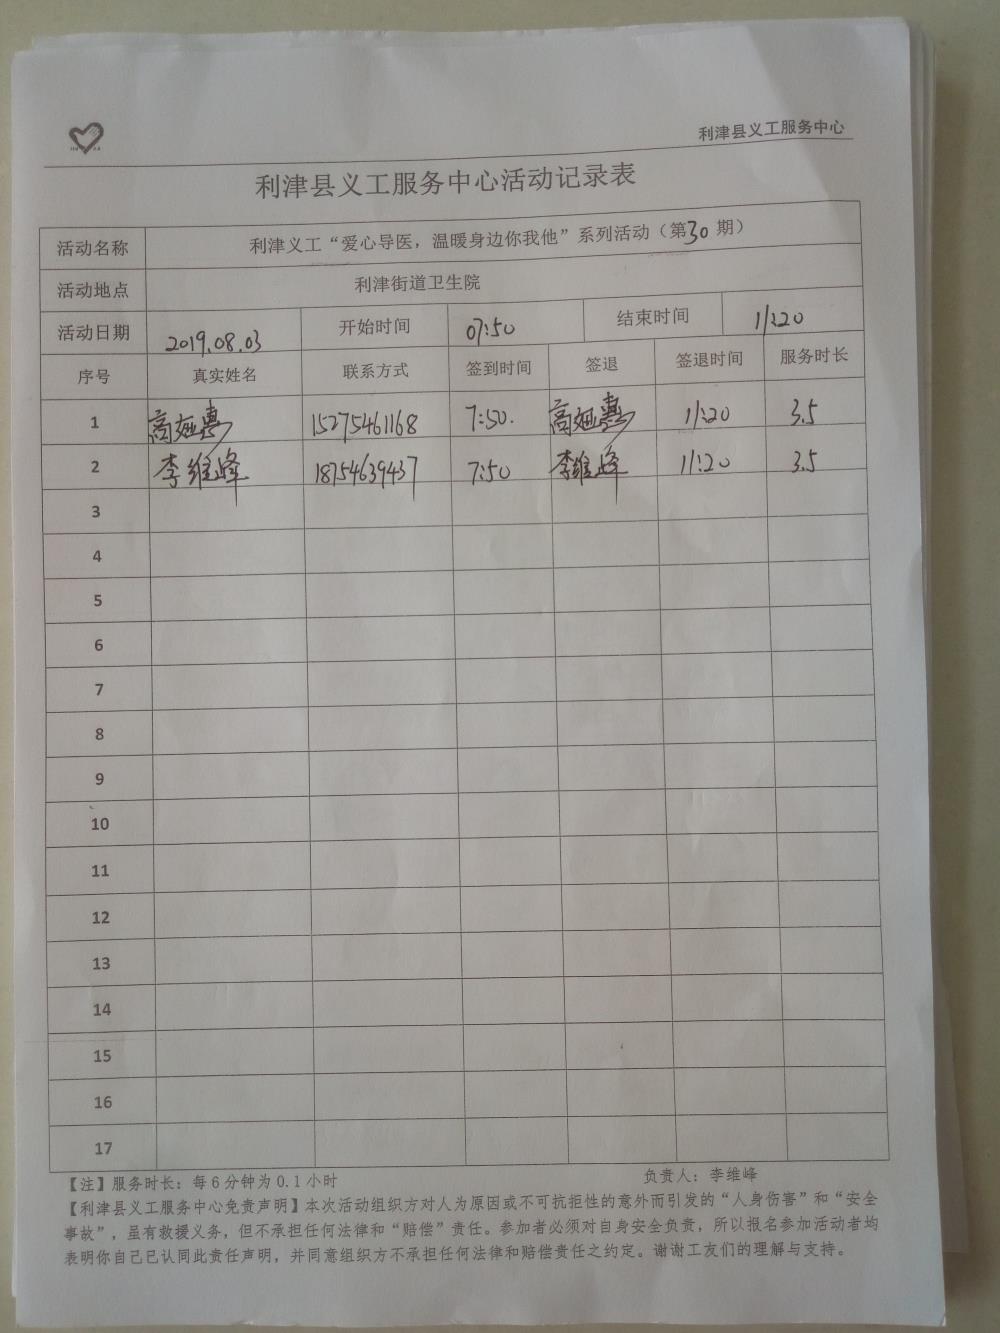 利津县义工服务中心
利津县义工服务中心活动记录表
活动名称 利津义工“爱心导医，温暖身边你我他”系列活动（第30期）
活动地点 利津街道卫生院
活动日期 2019.08.03 开始时间 07:50 结束时间 11:20
序号 真实姓名 联系方式 签到时间 签退 签退时间 服务时长
1 高娅惠 15275461168 7:50. 高娅惠 11:20 3.5
2 李维峰 18754639437 7:50 李维峰 11:20 3.5
3
4
5
6
7
8
9
10
11
12
13
14
15
16
17
【注】服务时长：每6分钟为0.1小时 负责人：李维峰
【利津县义工服务中心免责声明】本次活动组织方对人为原因或不可抗拒性的意外而引发的“人身伤害”和“安全
事故”，虽有救援义务，但不承担任何法律和“赔偿”责任。参加者必须对自身安全负责，所以报名参加活动者均
表明你自己已认同此责任声明，并同意组织方不承担任何法律和赔偿责任之约定。谢谢工友们的理解与支持。